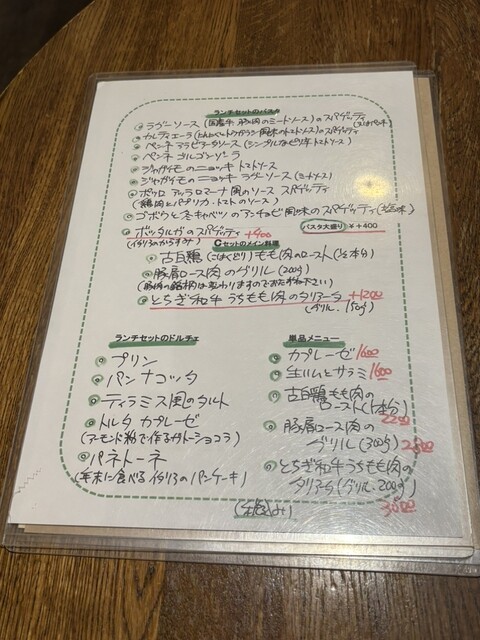 ランチセットのパスタ
ラグーソース (国産牛 豚肉のミートソース)のスパゲッティ
カレティエーラ (とトウガラシ風味のトマトソース)のスパゲッティ
ペンネ アラビアータソース (シンプルなピリ辛トマトソース)
ペンネ ゴルゴンゾーラ
ジャガイモのニョッキ トマトソース
ジャガイモのニョッキ ラグーソース (ミートソース)
ポッロ アッラ ロマーナ風のソース スパゲッティ
(鶏肉とパプリカ・トマトのソース)
ゴボウと冬キャベツのアンチョビ風味のスパゲッティ(塩味)
ボッタルガのスパゲッティ +400
(イタリアのからすみ)
パスタ大盛り ¥+400
Cセットのメイン料理
古白鶏 (こはくどり) もも肉のロースト(½本分)
豚肩ロース肉のグリル (200g)
(豚肉の銘柄は変わりますのでおたずね下さい)
とちぎ和牛 うちもも肉のタリアータ +1200
(グリル.150g)
ランチセットのドルチェ
プリン
パンナコッタ
ティラミス風のタルト
トルタ カプレーゼ
(アーモンド粉で作るガトーショコラ)
パネトーネ
(年末に食べる イタリアのパンケーキ)
単品メニュー
カプレーゼ 1600
生ハムとサラミ 1600
古白鶏もも肉の
ロースト(1本分)
2200
豚肩ロース肉の
グリル(300g)
とちぎ和牛うちもも肉の
タリアータ(グリル.200g)
(税込み)